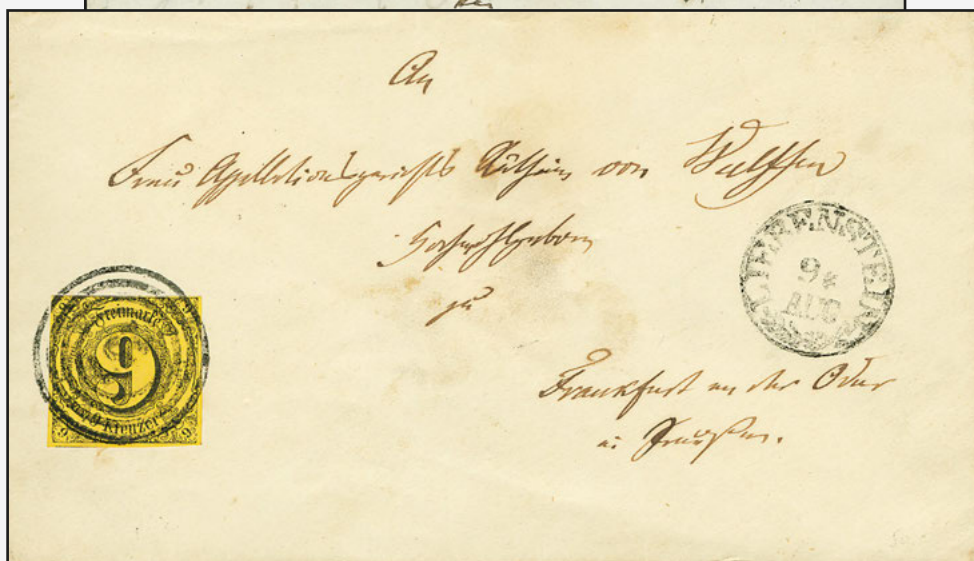 An
Frau Appellationsgerichts Räthin von Wulffen
Hochwohlgeboren
zu
Frankfurt an der Oder
in Preußen.
LIEBENSTEIN
9
AUG
Freimarke
9
9 Kreuzer
9
9